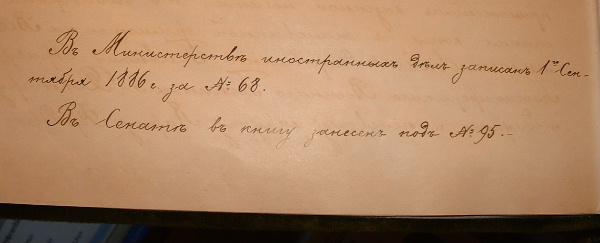 Въ Министерствѣ иностранныхъ дѣлъ записанъ 1го Сен-
тября 1886 г. за № 68.
Въ Сенатѣ въ книгу занесенъ подъ № 95.-